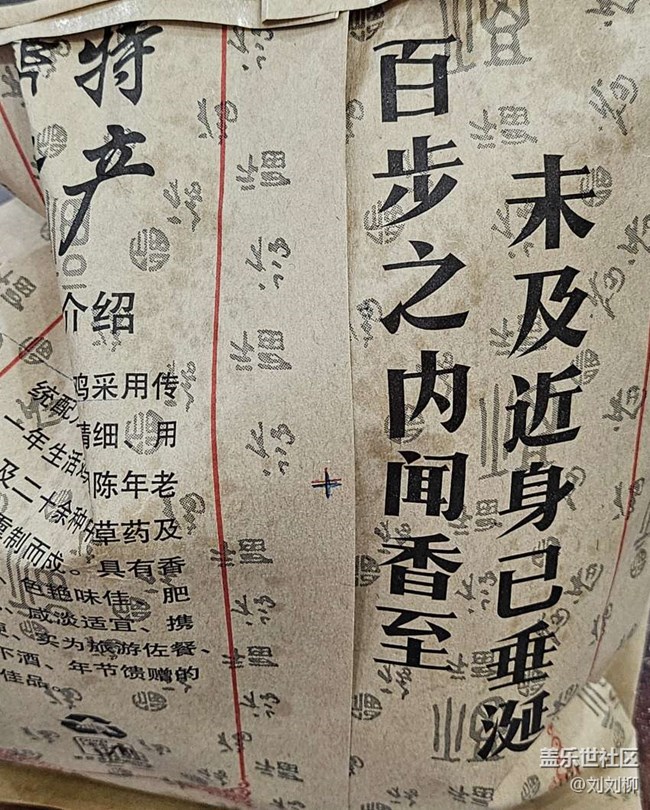 未及近身已垂涎
百步之内闻香至
特产
介绍
鸡采用传
统配
精细、用
一年生活
陈年老
及二十余种中草药及
制而成。具有香
、色艳味佳、肥
、咸淡适宜、携
、实为旅游佐餐、
下酒、年节馈赠的
佳品。
盖乐世社区
@刘刘柳